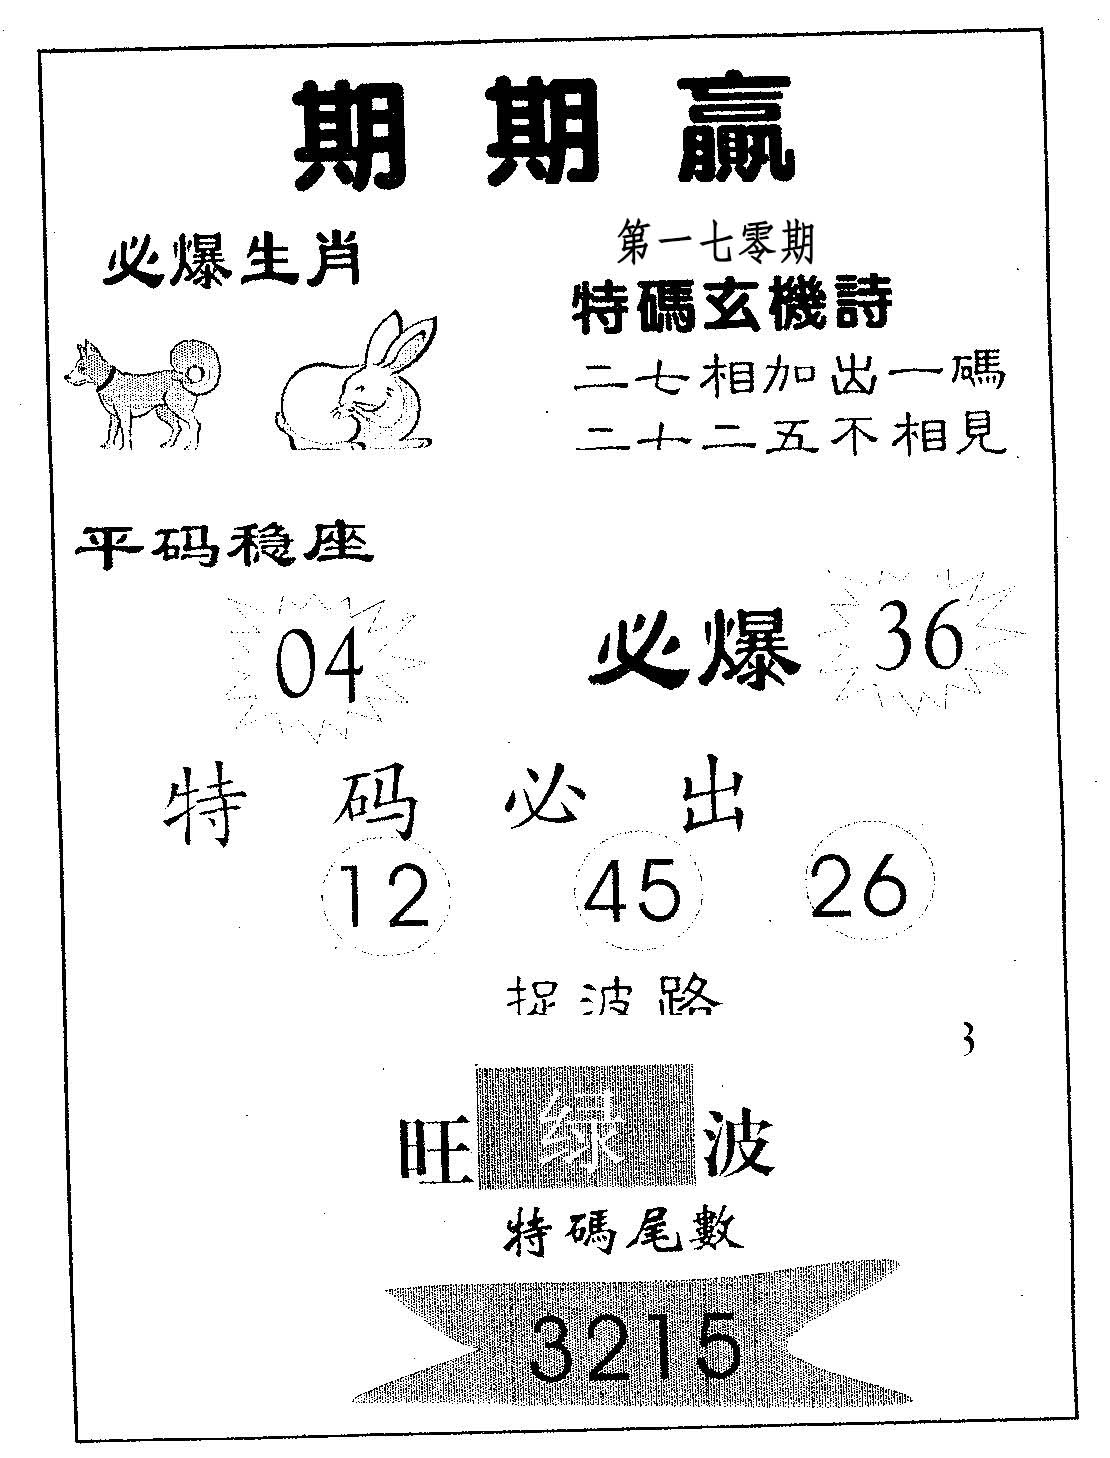 期期贏
必爆生肖
第一七零期
特碼玄機詩
二七相加出一碼
二十二五不相見
平码稳座
04
必爆 36
特码必出
12 45 26
捉波路
3
旺绿波
特碼尾數
3215